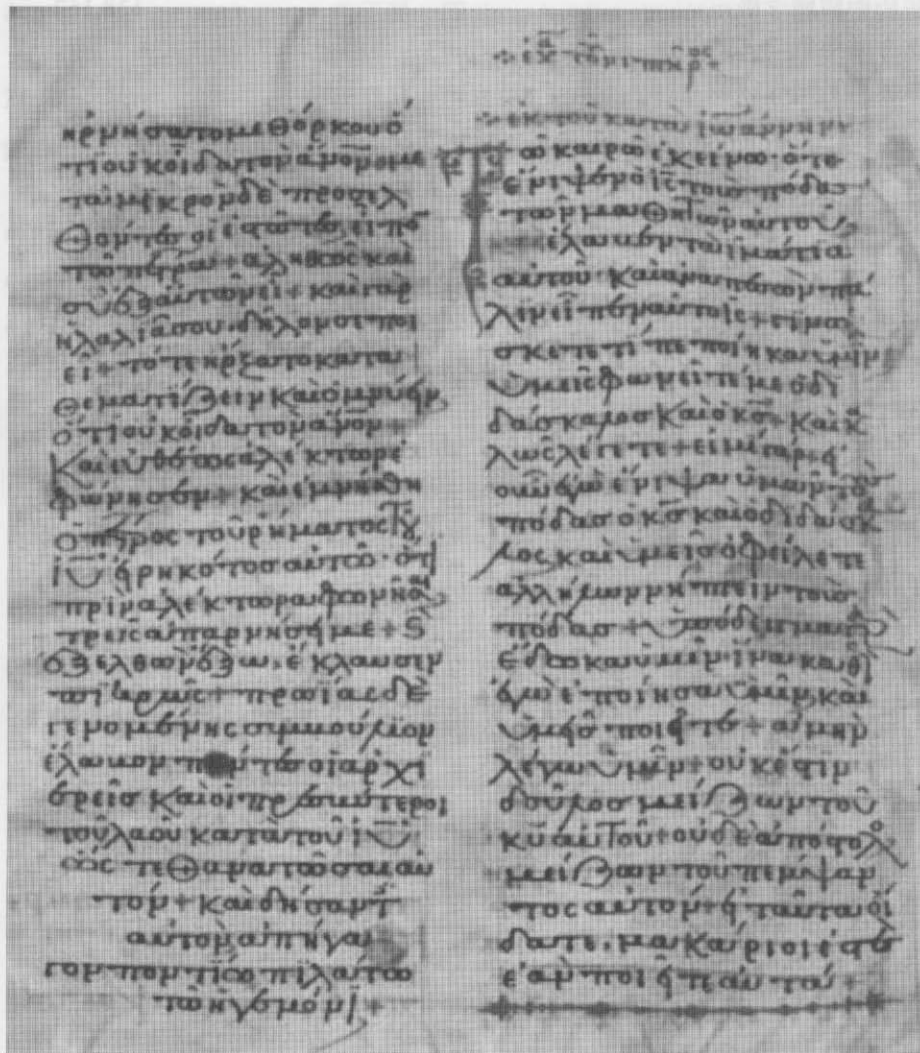 ηρνήσατο μεθόρκου ὅ
τι οὐκ οἶδα τὸν ἄνον με
τὰ μικρὸν δὲ προσελ
θόντες οἱ ἑστῶτες εἶπο
τῶ πέτρω + ἀληθῶς καὶ
σὺ ἐξ αὐτῶν εἶ + καὶ γὰρ
ἡ λαλιά σου δῆλόν σε ποι
εῖ + τότε ἤρξατο κατα
θεματίζειν καὶ ὀμνύειν
ὅτι οὐκ οἶδα τὸν ἄνον +
Καὶ εὐθέως ἀλέκτωρ ἐ
φώνησεν + καὶ ἐμνήσθη
ὁ πέτρος τοῦ ῥήματος τοῦ
ἰῦ εἰρηκότος αὐτῶ · ὅτι
πρὶν ἀλέκτωρα φωνῆσαι
τρεῖς ἀπαρνήσει με + κ
ἐξελθὼν ἔξω ἔκλαυσεν
πικρῶς + πρωΐας δὲ
γενομένης συμβούλιον
ἔλαβον πάντες οἱ ἀρχι
ερεῖς καὶ οἱ πρεσβύτεροι
τοῦ λαοῦ κατὰ τοῦ ἰῦ
ὥστε θανατῶσαι αὐ
τόν + καὶ δήσαντ
αὐτὸν ἀπήγα
γον ποντίω πιλάτω
τῶ ηγεμόνι +
ἐκ τοῦ κατὰ ἰωάννην
Τῶ καιρῶ ἐκείνω · ὅτε
ἔνιψεν ὁ ἰς τοὺς πόδας
τῶν μαθητῶν αὐτοῦ
ἔλαβεν τὰ ἱμάτια
αὐτοῦ · καὶ ἀναπεσὼν πά
λιν εἶπεν αὐτοῖς + γινώ
σκετε τί πεποίηκα ὑμῖν
ὑμεῖς φωνεῖτέ με ὁ δι
δάσκαλος καὶ ὁ κς + καὶ κα
λῶς λέγετε + εἰμὶ γάρ + εἰ
οὖν ἐγὼ ἔνιψα ὑμῶν τοὺς
πόδας ὁ κς καὶ ὁ διδάσκα
λος καὶ ὑμεῖς ὀφείλετε
ἀλλήλων νίπτειν τοὺς
πόδας + ὑπόδειγμα γὰρ
ἔδωκα ὑμῖν · ἵνα καθὼς
ἐγὼ ἐποίησα ὑμῖν καὶ
ὑμεῖς ποιεῖτε + ἀμὴν
λέγω ὑμῖν + οὐκ ἔστιν
δοῦλος μείζων τοῦ
κῦ αὐτοῦ + οὐδὲ ἀπόστολος
μείζων τοῦ πέμψαν
τος αὐτόν + εἰ ταῦτα οἴ
δατε · μακάριοί ἐστε
ἐὰν ποιῆτε αὐτά +